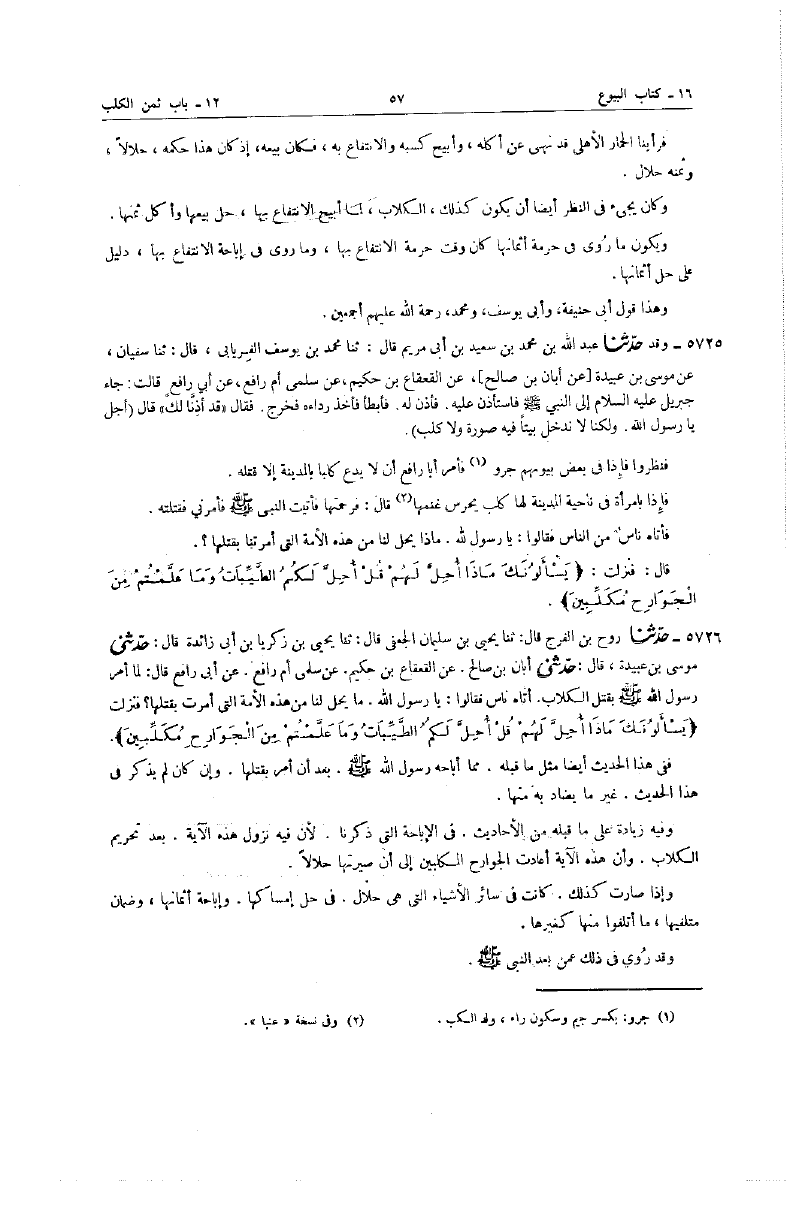 ١٦ - كتاب البيوع ٥٧ ١٢ - باب ثمن الكلب
فرأينا الحمار الأهلى قد نهى عن أكله ، وأبيح كسبه والانتفاع به ، فكان بيعه، إذ كان هذا حكمه ، حلالاً ،
وثمنه حلال .
وكان يجىء فى النظر أيضا أن يكون كذلك ، الكلاب ، لما أبيح الانتفاع بها ، حل بيعها وأكل ثمنها .
ويكون ما رُوى فى حرمة أثمانها كان وقت حرمة الانتفاع بها ، وما روى فى إباحة الانتفاع بها ، دليل
على حل أثمانها .
وهذا قول أبى حنيفة، وأبى يوسف، ومحمد، رحمة الله عليهم أجمعين .
٥٧٢٥ - وقد حدّثنا عبد الله بن محمد بن سعيد بن أبى مريم قال : ثنا محمد بن يوسف الفريابى ، قال : ثنا سفيان ،
عن موسى بن عبيدة [عن أبان بن صالح]، عن القعقاع بن حكيم، عن سلمى أم رافع، عن أبي رافع قالت: جاء
جبريل عليه السلام إلى النبي ﷺ فاستأذن عليه . فأذن له . فأبطأ فأخذ رداءه فخرج . فقال «قد أذِنَّا لك» قال (أجل
يا رسول الله . ولكنا لا ندخل بيتاً فيه صورة ولا كلب).
فنظروا فإذا فى بعض بيوتهم جرو (١) فأمر أبا رافع أن لا يدع كلبا بالمدينة إلا قتله .
فإذا بامرأة فى ناحية المدينة لها كلب يحرس غنمها(٢) قال : فرحمتها فأتيت النبى ﷺ فأمرني فقتلته .
فأتاه ناس من الناس فقالوا : يا رسول لله . ماذا يحل لنا من هذه الأمة التى أمرتنا بقتلها ؟ .
قال : فنزلت : ﴿ يَسْأَلُونَكَ مَاذَا أُحِلَّ لَهُمْ قُلْ أُحِلَّ لَكُمُ الطَّيِّبَاتُ وَمَا عَلَّمْتُمْ مِنَ
الْجَوَارِحِ مُكَلِّبِينَ﴾ .
٥٧٢٦ - حدّثنا روح بن الفرج قال: ثنا يحيى بن سليمان الجعفى قال: ثنا يحيى بن زكريا بن أبى زائدة قال: حدّثنى
موسى بن عبيدة ، قال : حدّثنى أبان بن صالح . عن القعقاع بن حكيم. عن سلمى أم رافع . عن أبى رافع قال: لما أمر
رسول الله ﷺ بقتل الكلاب. أتاه ناس فقالوا : يا رسول الله . ما يحل لنا من هذه الأمة التى أمرت بقتلها؟ فنزلت
﴿يَسْأَلُونَكَ مَاذَا أُحِلَّ لَهُمْ قُلْ أُحِلَّ لَكُمُ الطَّيِّبَاتُ وَمَا عَلَّمْتُمْ مِنَ الْجَوَارِحِ مُكَلِّبِينَ﴾.
ففى هذا الحديث أيضا مثل ما قبله . مما أباحه رسول الله ﷺ . بعد أن أمر بقتلها . وإن كان لم يذكر فى
هذا الحديث . غير ما يصاد به منها .
وفيه زيادة على ما قبله من الأحاديث . فى الإباحة التى ذكرنا . لأن فيه نزول هذه الآية . بعد تحريم
الكلاب . وأن هذه الآية أعادت الجوارح المكلبين إلى أن صيرتها حلالاً .
وإذا صارت كذلك . كانت فى سائر الأشياء التى هى حلال . فى حل إمساكها . وإباحة أثمانها ، وضمان
متلفيها ، ما أتلفوا منها كغيرها .
وقد رُوي فى ذلك عمن بعد النبى ﷺ .
(١) جرو: بكسر جيم وسكون راء ، ولد الكلب . (٢) وفى نسخة « عنبا ».